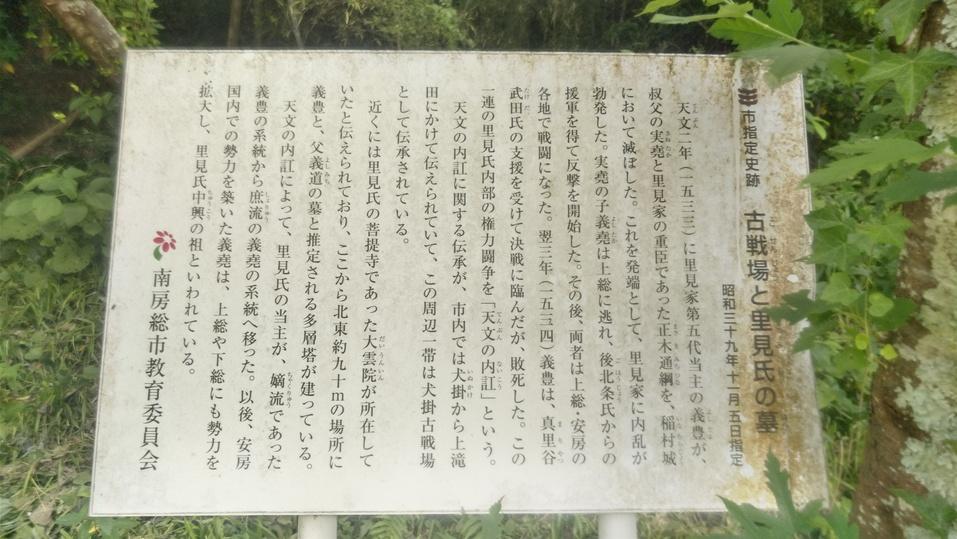 市指定史跡 古戦場と里見氏の墓
昭和三十九年十一月五日指定
天文二年(一五三三)に里見家第五代当主の義豊が、
叔父の実堯と里見家の重臣であった正木通綱を、稲村城
において滅ぼした。これを発端として、里見家に内乱が
勃発した。実堯の子義堯は上総に逃れ、後北条氏からの
援軍を得て反撃を開始した。その後、両者は上総・安房の
各地で戦闘になった。翌三年(一五三四)義豊は、真里谷
武田氏の支援を受けて決戦に臨んだが、敗死した。この
一連の里見氏内部の権力闘争を「天文の内訌」という。
天文の内訌に関する伝承が、市内では犬掛から上滝
田にかけて伝えられていて、この周辺一帯は犬掛古戦場
として伝承されている。
近くには里見氏の菩提寺であった大雲院が所在して
いたと伝えられており、ここから北東約九十mの場所に
義豊と、父義通の墓と推定される多層塔が建っている。
天文の内訌によって、里見氏の当主が、嫡流であった
義豊の系統から庶流の義堯の系統へ移った。以後、安房
国内での勢力を築いた義堯は、上総や下総にも勢力を
拡大し、里見氏中興の祖といわれている。
南房総市教育委員会